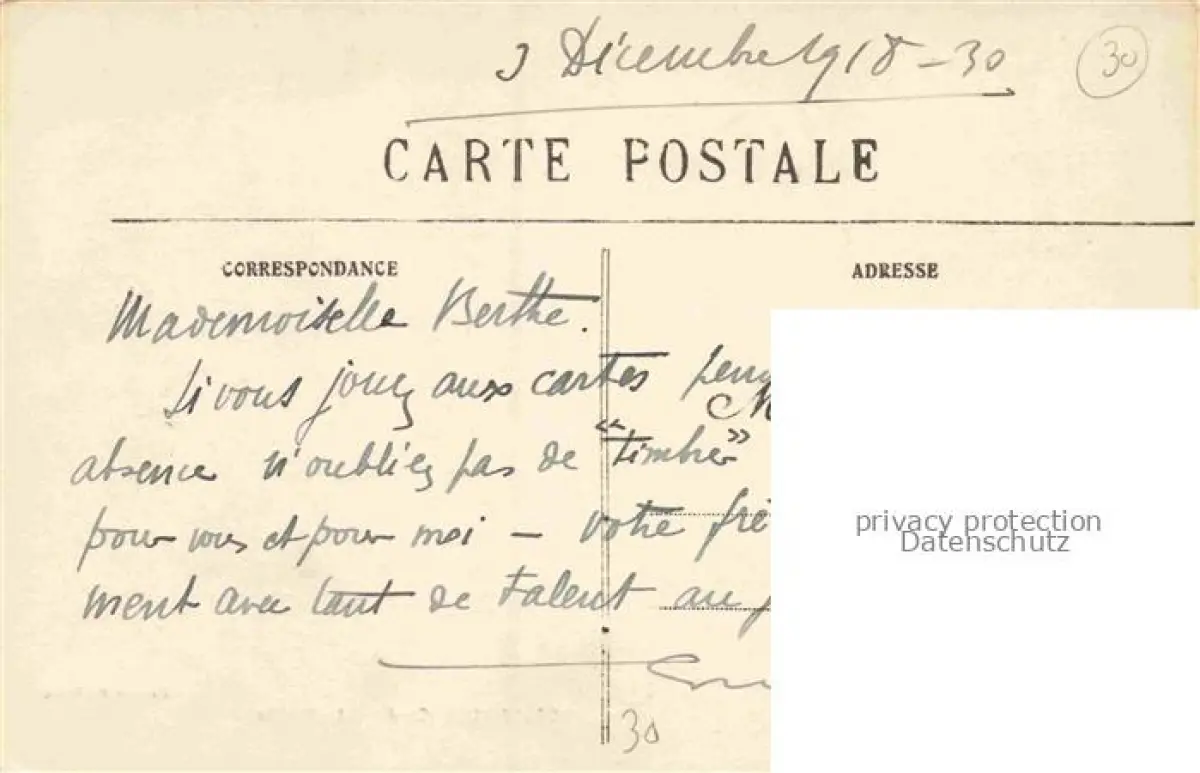 3 Décembre 1918 - 30
30
CARTE POSTALE
CORRESPONDANCE
ADRESSE
Mademoiselle Berthe.
Si vous jouez aux cartes
absence n'oubliez pas de "timbrer"
pour vous et pour moi — votre
ment avec tant de talent au
30
privacy protection
Datenschutz